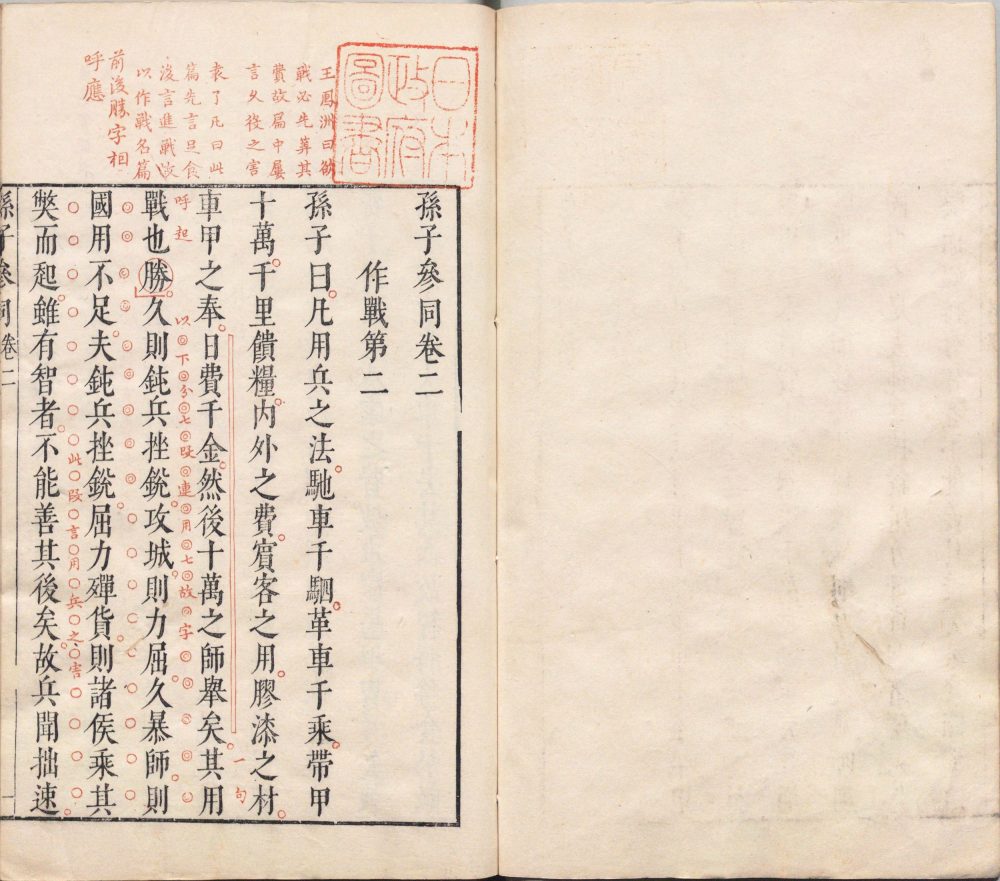 日本
政府
圖書
王鳳洲曰欲
戰必先筭其
費故篇中屢
言久役之害
袁了凡曰此
篇先言足食
後言進戰故
以作戰名篇
前後勝字相
呼應
孫子參同卷二
作戰第二
孫子曰凡用兵之法馳車千駟革車千乘帶甲
十萬千里饋糧内外之費賓客之用膠漆之材
一句
車甲之奉日費千金然後十萬之師舉矣其用
呼起
以下分七段連用七故字
戰也勝久則鈍兵挫銳攻城則力屈久暴師則
國用不足夫鈍兵挫銳屈力殫貨則諸侯乘其
此段言用兵之害
獘而起雖有智者不能善其後矣故兵聞拙速
孫子參同卷二
一